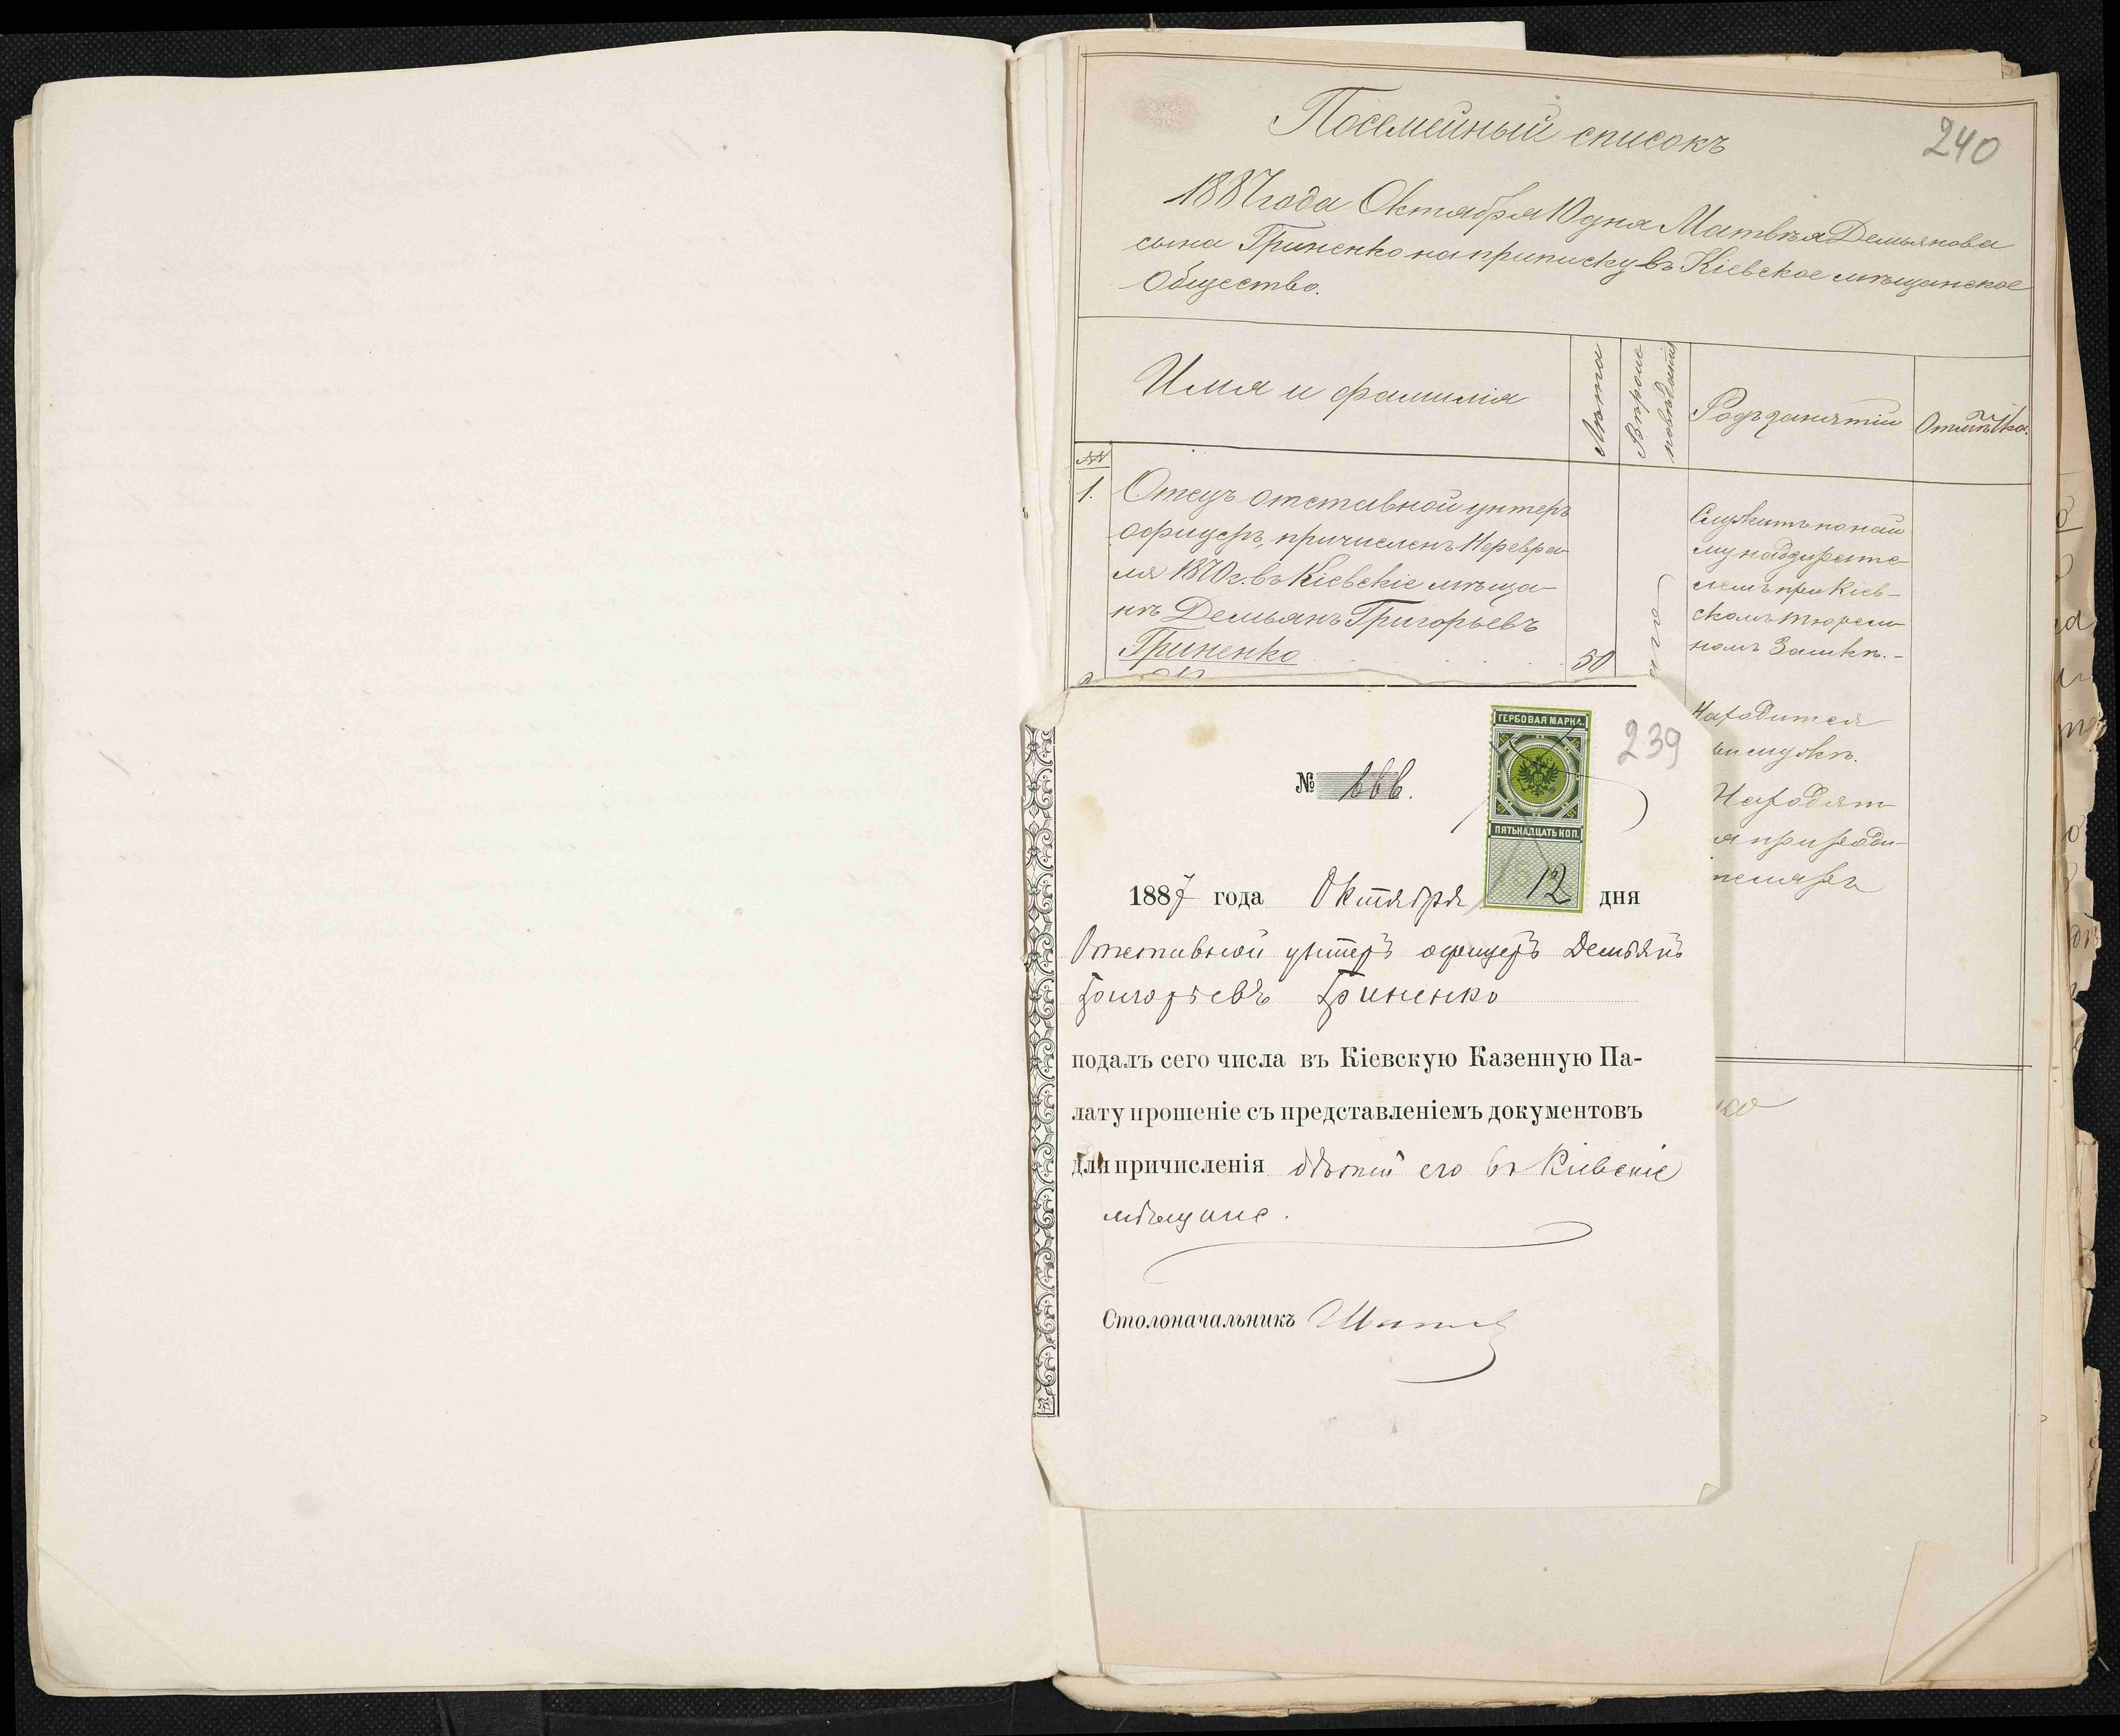 240
Посемейный списокъ
1887 года Октября 10 дня Матвѣя Демьянова
сына Гриненко на приписку въ Кіевское мѣщанское
Общество.
Имя и фамилія
Лѣта
Родъ занятій
Отмѣтка.
№№
1.
Отецъ отставной унтеръ
офицеръ, причисленъ 11 Февра-
ля 1870 г. въ Кіевскіе мѣща-
нѣ Демьянъ Григорьевъ
Гриненко
50
Служитъ по най
му надзирате-
лемъ при Кіев-
скомъ тюрем-
номъ Замкѣ.-
Находится
Находят
я при роди-
теляхъ
239
ГЕРБОВАЯ МАРКА.
ПЯТЬНАДЦАТЬ КОП.
№ 666.
1887 года Октября 12 дня
Отставной унтеръ офицеръ Демьянъ
Григорьевъ Гриненко
подалъ сего числа въ Кіевскую Казенную Па-
лату прошеніе съ представленіемъ документовъ
для причисленія дѣтей его въ Кіевскіе
мѣщане.
Столоначальникъ